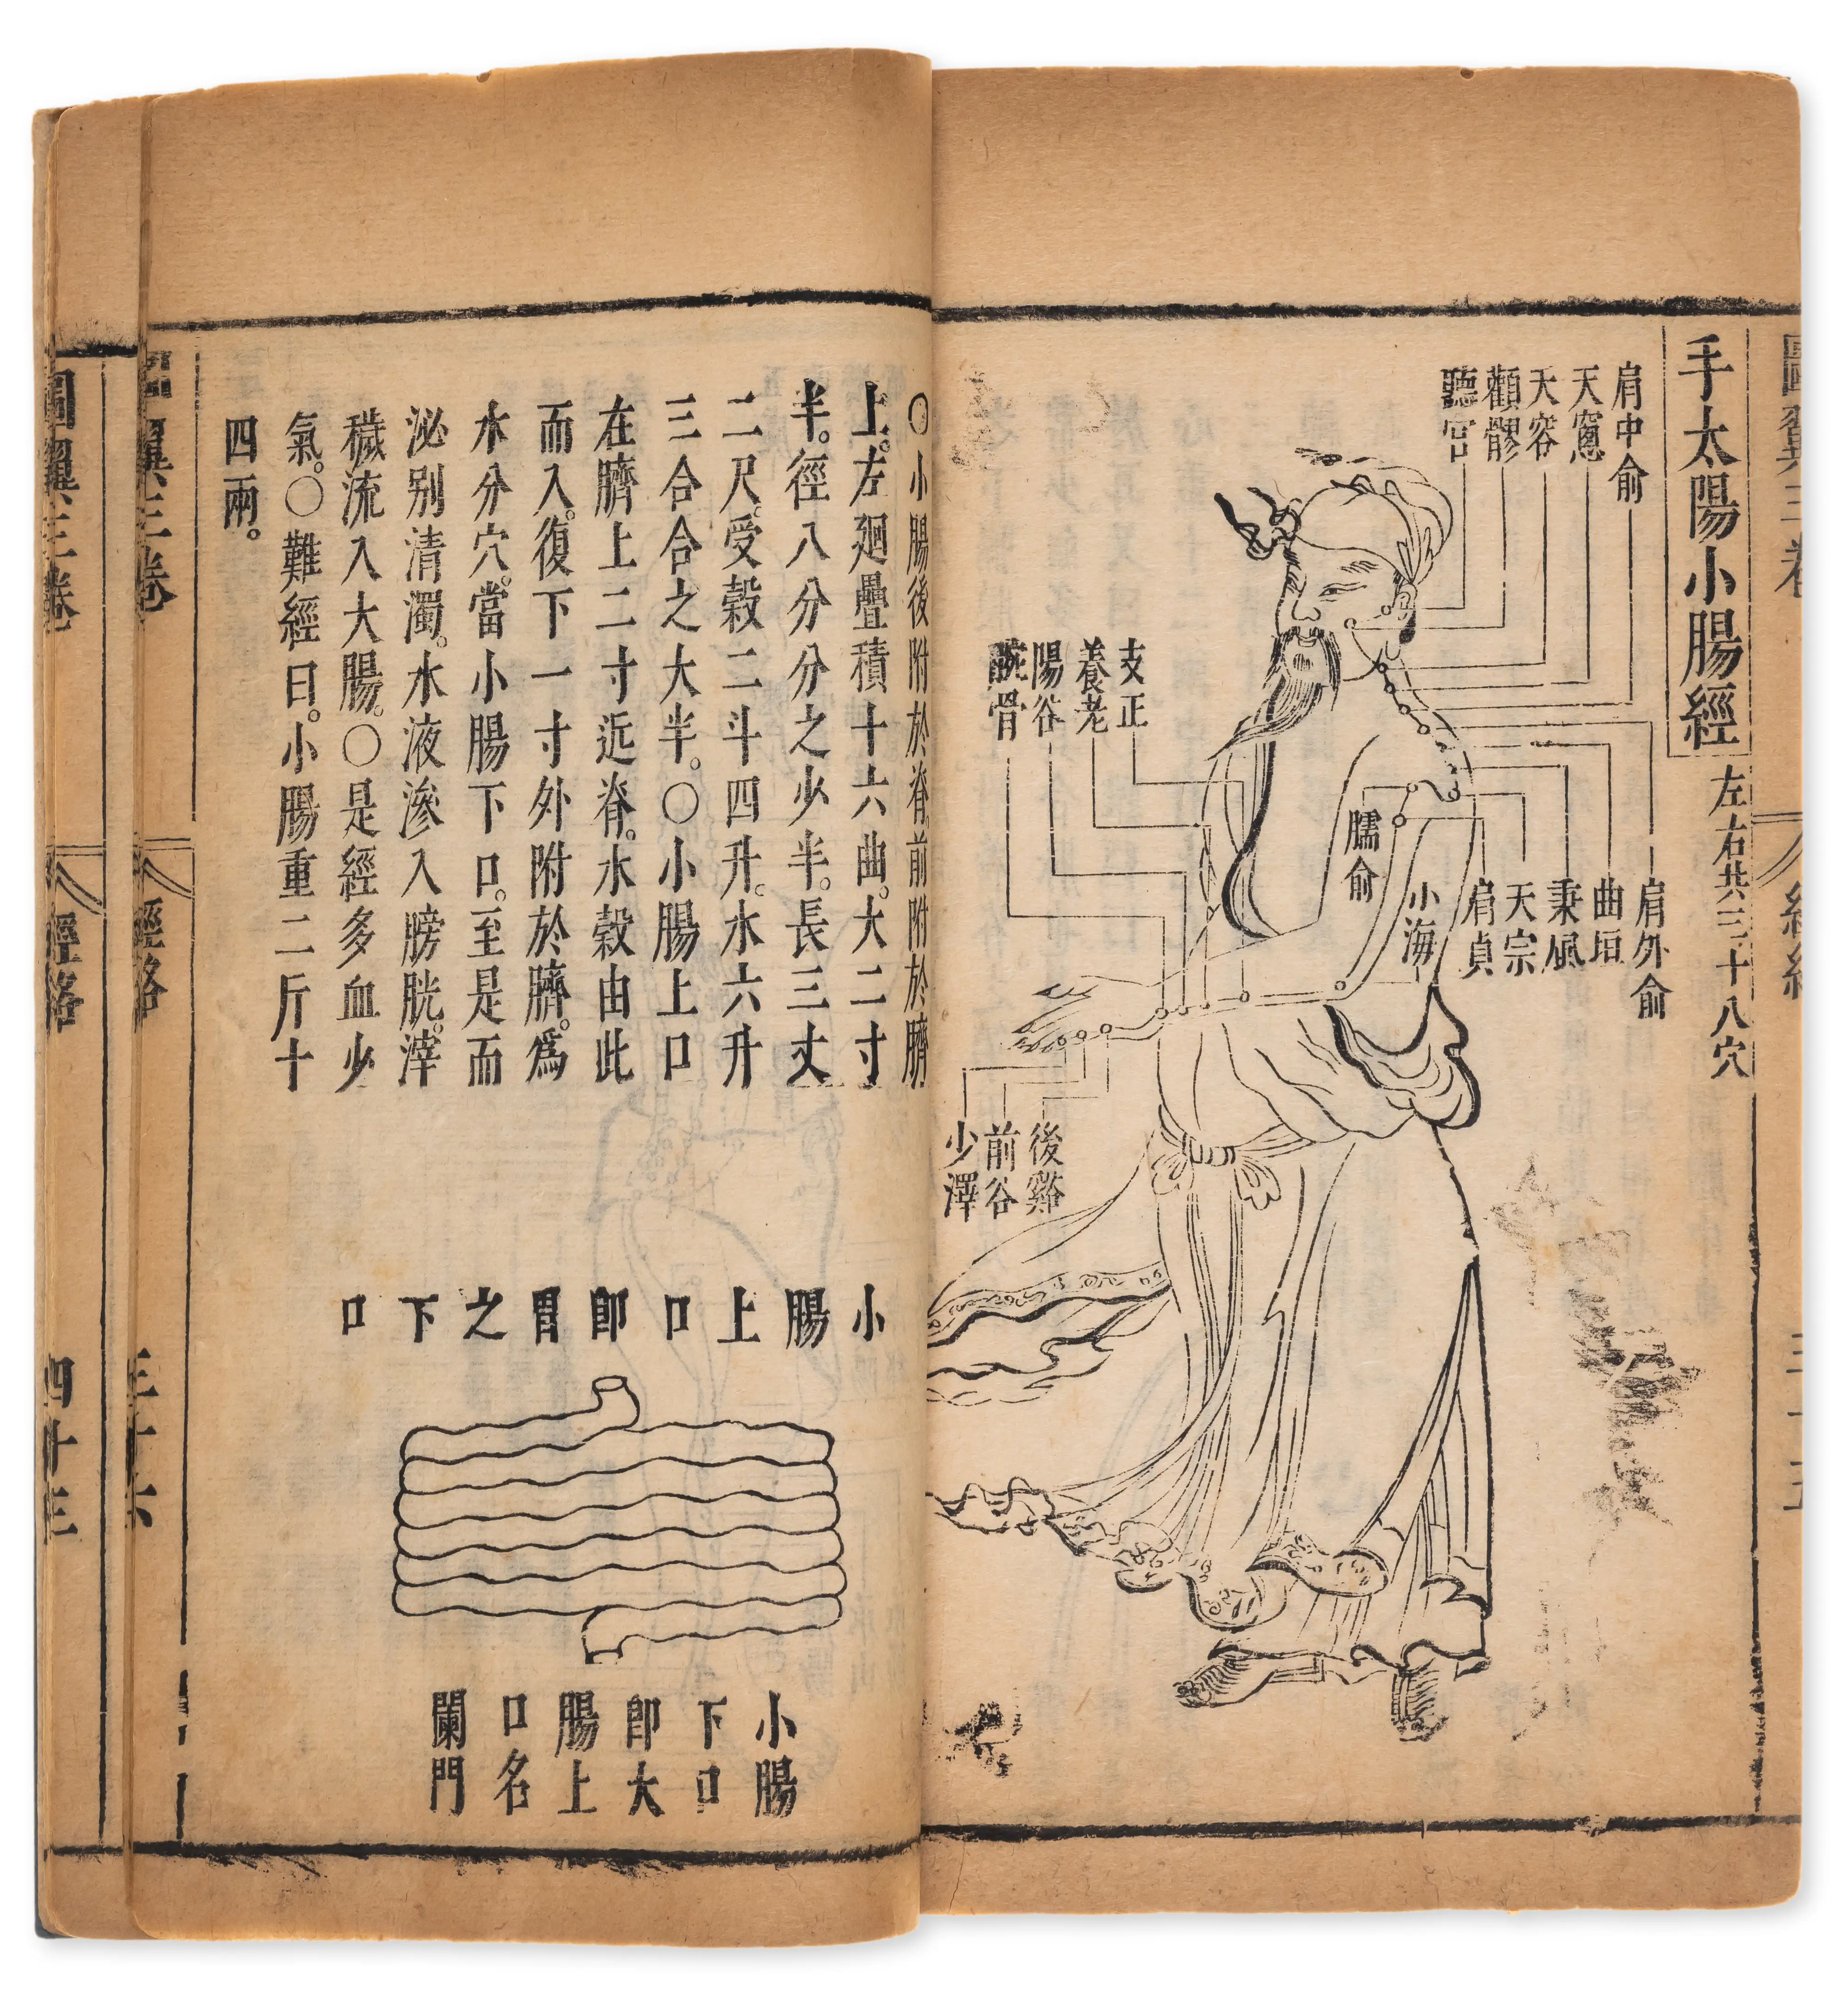 手太陽小腸經
左右共三十八穴
肩中俞
天窓
天容
顴髎
聽宮
支正
養老
陽谷
腕骨
肩外俞
曲垣
秉風
天宗
肩貞
小海
臑俞
後谿
前谷
少澤
〇小腸後附於脊前附於臍
上。左廻疊積十六曲。大二寸
半。徑八分分之少半。長三丈
二尺。受穀二斗四升。水六升
三合合之大半。〇小腸上口
在臍上二寸近脊。水穀由此
而入。復下一寸外附於臍。為
水分穴。當小腸下口。至是而
泌别清濁。水液滲入膀胱。滓
穢流入大腸。〇是經多血少
氣。〇難經曰。小腸重二斤十
四兩。
小腸上口即胃之下口
小腸
下口
即大
腸上
口名
闌門
圖翼三卷
經絡
三十六
圖翼三卷
經絡
四十三